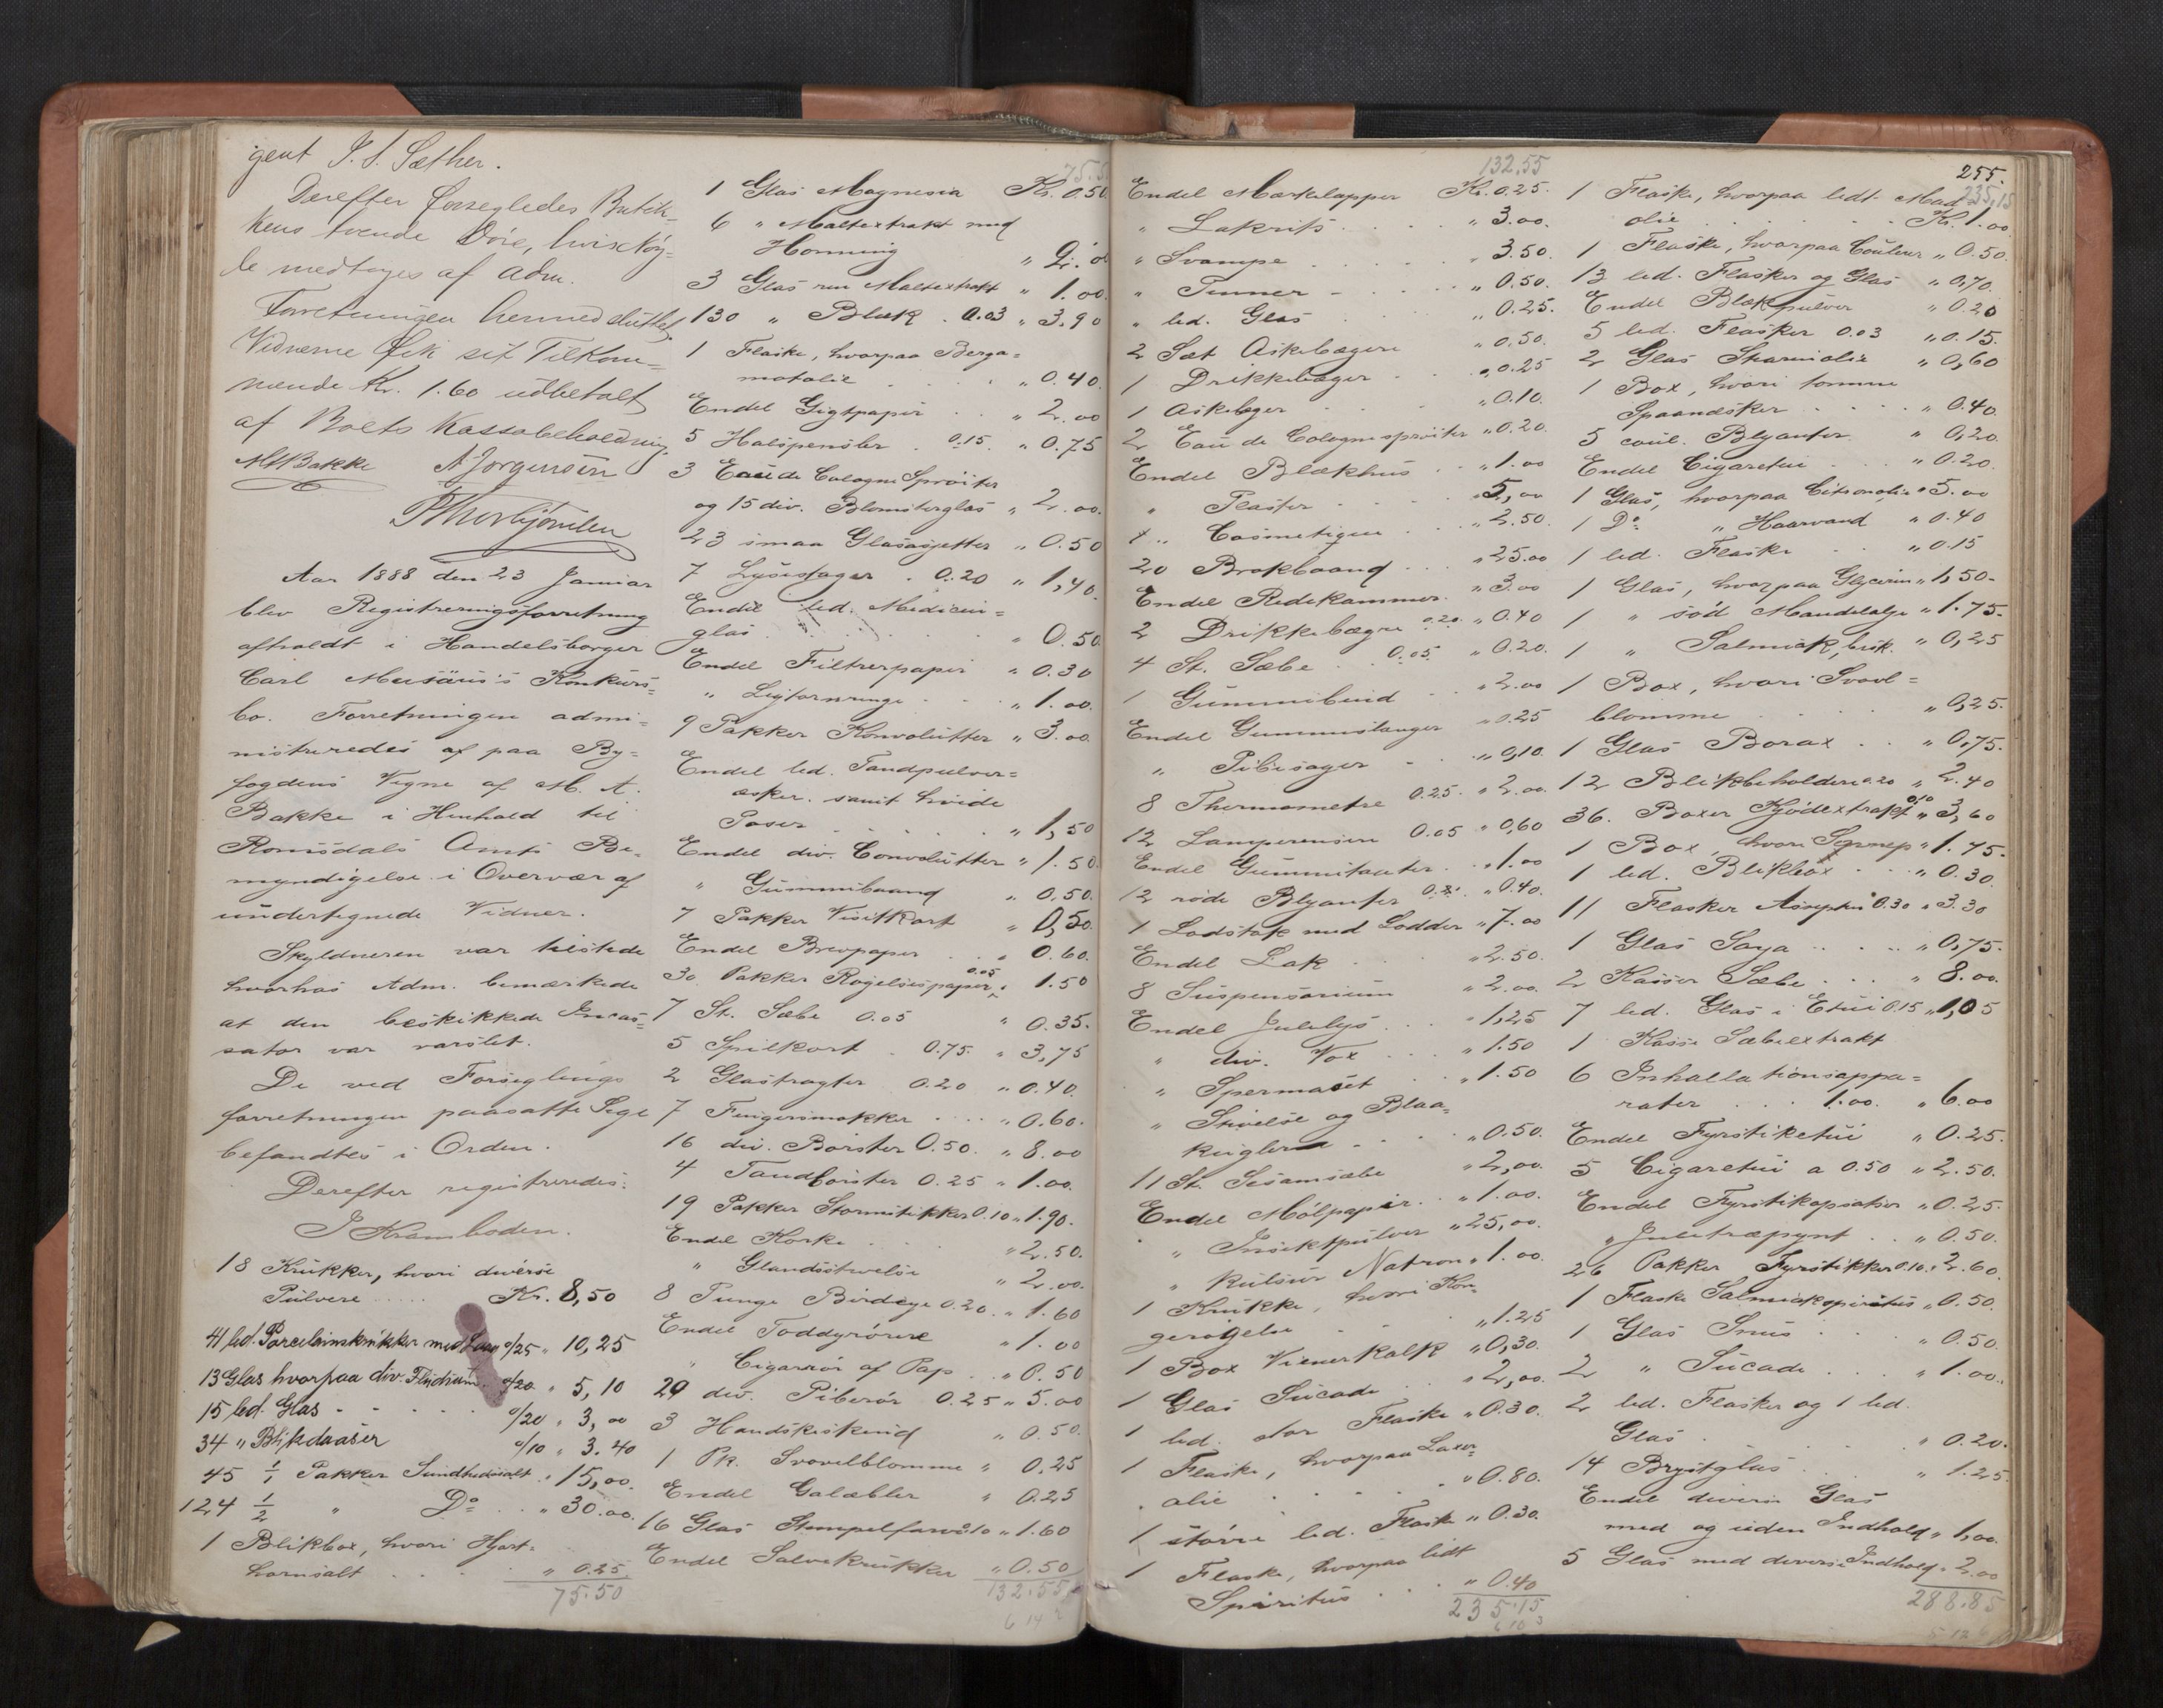 gent I. S. Sæther.
Derefter forsegledes Butik-
kens tvende Döre, hvis Nög-
le medtoges af Adm.
Forretningen hermed sluttet
Vidnerne fik sit Tilkom-
mende Kr. 1.60 udbetalt
af Boets Kassabeholdning.
M Bakke N Jorgensen
Aar 1888 den 23 Januar
blev Registreringsforretning
afholdt i Handelsborger
Carl Musäus's Konkurs-
bo. Forretningen admi-
nistreredes af paa By-
fogdens Vegne af M. A.
Bakke i Henhold til
Romsdals Amts Be-
myndigelse i Overvær af
undertegnede Vidner.
Skyldneren var tilstede
hvorhos Adm. bemærkede
at den beskikkede Incas-
sator var varslet.
De ved Forseglings
forretningen paasatte Segl
befandtes i Orden.
Derefter registreredes:
I Kramboden.
18 Krukker, hvori diverse
Pulvere ..... Kr. 8,50
41 led. Porcelainskrukker med Laag 0/25 " 10,25
13 Glas hvorpaa div. Fluidum 0/20 " 5,10
15 led. Glas - - - - 0/20 " 3,00
34 " Blikdaaser 0/10 " 3.40
45 1/1 Pakker Sundhedssalt " 15,00.
124 1/2 " Do . . " 30.00.
1 Blikbox, hvori Hjort-
hornsalt . . . " 0.25
75.50
75.5
1 Glas Magnesia Kr. 0.50
6 " Maltextrakt med
Honning " 2.0
3 Glas ren Maltextrakt " 1.00.
130 " Blæk . 0.03 " 3.90
1 Flaske, hvorpaa Berga-
motolie . . . " 0.40.
Endel Gigtpapir . . " 2.00
5 Halspensler . 0.15. " 0.75
3 Eau de Cologne Spröiter
og 15 div. Blomsterglas " 2.00.
23 smaa Glasasjetter " 0.50
7 Lysestager . 0.20 " 1,40.
Endel led. Medicin-
glas . . . . . " 0.50
Endel Filtrerpapir " 0.30
" Ligtornringe . . " 1.00.
9 Pakker Konvolutter " 3.00.
Endel led. Tandpulver-
æsker. samt hvide
Poser . . . . . " 1,50
Endel div. Convolutter " 1.50
" Gummibaand " 0,50.
7 Pakker Visitkort " 0,50.
Endel Brevpapir . . " 0.60.
30 Pakker Rögelsespapir 0.05 " 1.50
7 St. Sæbe 0.05 " 0.35.
5 Spilkort . 0.75. " 3,75
2 Glastragter 0.20 " 0.40.
7 Fingersmokker . . . . " 0.60.
16 div. Börster 0.50. " 8.00
4 Tandbörster 0.25 " 1.00.
19 Pakker Stormstikker 0.10 " 1.90.
Endel Korke . . . " 2.50.
" Glandsstivelse " 2.00.
8 Tunge Birdeye 0.20. " 1.60
Endel Toddyrörere " 1.00
" Cigarrör af Pap . . " 0.50
20 div. Piberör 0.25 " 5.00
3 Handskeskind " 0.50.
1 Pk. Svovelblomme " 0.25
Endel Galæbler " 0.25
16 Glas Stempelfarve 10 " 1.60
Endel Salvekrukker " 0.50
132.55
6 14 2
132.55
Endel Mærkelapper Kr. 0.25.
" Lakrits . . . . " 3.00.
" Svampe . . . . " 3.50.
" Tenner - . . . " 0.50.
" led. Glas . . . " 0.25.
2 Sæt Askebægere " 0.50.
1 Drikkebæger . . " 0.25
1 Askebæger . . . " 0.10.
2 Eau de Cologne spröiter " 0.20.
Endel Blækhus . . " 1.00
" Plaster . . . " 5,00
4 " Cosmetique . . . " 2.50.
20 Brokbaand . . . " 25.00
Endel Redekammer. " 3.00
2 Drikkebægre 0.20 " 0.40
4 St. Sæbe . . 0.05. " 0.20.
1 Gummibind . . " 2.00
Endel Gummislanger " 0.25
" Pibesager . . " 0,10.
8 Thermometre 0.25. " 2.00.
12 Lamperensere 0.05 " 0,60
Endel Gummitauter . " 1.00
12 röde Blyanter " 0.40.
1 Lodstok med Lodder " 7.00
Endel Lak . . . " 2.50.
8 Suspensorium " 2.00.
Endel Julelys . . . " 1,25
" div. Vox . . " 1.50
" Spermacet . . " 1.50
" Stivelse og Blaa-
kugler . . . . " 0.50.
11 St. Sesamsæbe " 2,00.
Endel Mölpapir . " 1.00.
" Insektpulver " 25,00.
" kulsur Natron " 1.00.
1 Krukke, hvori Kon-
gerögelse . . . " 1.25
1 Box Wienerkalk " 0,30.
1 Glas Sucade . . " 2,00.
1 led. stor Flaske " 0.30.
1 Flaske, hvorpaa Laxer-
olie . . . . . " 0.80.
1 större led. Flaske " 0.30.
1 Flaske, hvorpaa lidt
Spiritus . . . " 0.40
235.15
6 10 3
255.
235,15
1 Flaske, hvorpaa lidt Mad-
olie . . . . . . . Kr. 1.00
1 Flaske, hvorpaa Couleur " 0.50.
13 led. Flasker og Glas " 0,70.
Endel Blækpulver " 0.20
5 led. Flasker 0.03 " 0.15.
2 Glas Skarniolie " 0,60
1 Box, hvori tomme
Spaanæsker . . . . " 0.40.
5 coul. Blyanter. " 0,20.
Endel Cigaretui . . . " 0.20.
1 Glas, hvorpaa Citronolie " 5.00
1 Do " Haarvand " 0.40
1 led. Flaske . . " 0.15
1 Glas, hvorpaa Glycerin " 1,50.
1 " söd Mandelolje " 1.75.
1 " Salmiak, krist. " 0,25
1 Box, hvori Svovl-
blomme . . . . " 0,25.
1 Glas Borax . . " 0,75.
12 Blikbeholdere 0.20 " 2.40
36. Boxer Kjödextrakt 0.10 " 3,60
1 Box, hvori Sennep " 1.75.
1 led. Blikbox . . . " 0.30.
11 Flasker Aseptin 0.30 " 3.30
1 Glas Soya . . . . . " 0,75.
2 Kasser Sæbe . . . " 8.00.
7 led. Glas i Etui 0.15 " 1,05
1 Kasse Sæbeextrakt
6 Inhallationsappa-
rater . . . 1.00. " 6.00
Endel Fyrstiketui " 0.25.
5 Cigaretui a 0.50 " 2.50.
Endel Fyrstikopsatser " 0.25.
" Juletræpynt . . " 0.50.
26 Pakker Fyrstikker 0.10 " 2.60.
1 Flaske Salmiakspiritus " 0.50.
1 Glas Snus . . " 0.50.
2 " Sucade . . . " 1.00.
2 led. Flasker og 1 led.
Glas . . . . . " 0.20.
14 Brystglas . . . " 1.25.
Endel diverse Glas
med og uden Indhold " 1,00.
5 Glas med diverse Indhold " 2.00
288.85
5 12 6